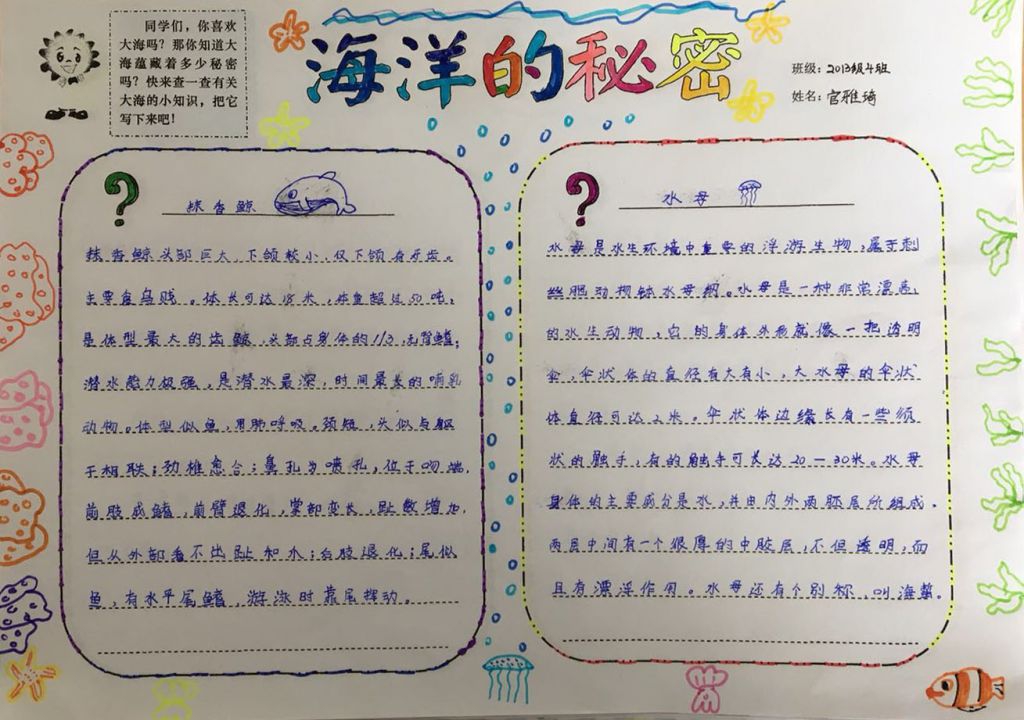 同学们，你喜欢
大海吗？那你知道大
海蕴藏着多少秘密
吗？快来查一查有关
大海的小知识，把它
写下来吧！
海洋的秘密
班级：2013级4班
姓名：官雅琦
?
抹香鲸
抹香鲸头部巨大，下颌较小，仅下颌有牙齿。
主要食乌贼。体长可达18米，体重超过50吨，
是体型最大的齿鲸，头部占身体的1/3，无背鳍，
潜水能力极强，是潜水最深，时间最长的哺乳
动物。体型似鱼，用肺呼吸。颈短，头似与躯
干相联；颈椎愈合；鼻孔为喷孔，位于吻端，
前肢成鳍，前臂退化，掌部变长，趾数增加，
但从外部看不出趾和爪；后肢退化；尾似
鱼，有水平尾鳍，游泳时靠尾摆动。
?
水母
水母是水生环境中重要的浮游生物，属于刺
丝胞动物钵水母纲。水母是一种非常漂亮
的水生动物，它的身体外形就像一把透明
伞，伞状体的直径有大有小，大水母的伞状
体直径可达2米。伞状体边缘长有一些须
状的触手，有的触手可长达20—30米。水母
身体的主要成分是水，并由内外两胚层所组成。
两层中间有一个很厚的中胶层，不但透明，而
且有漂浮作用。水母还有个别称，叫海蜇。